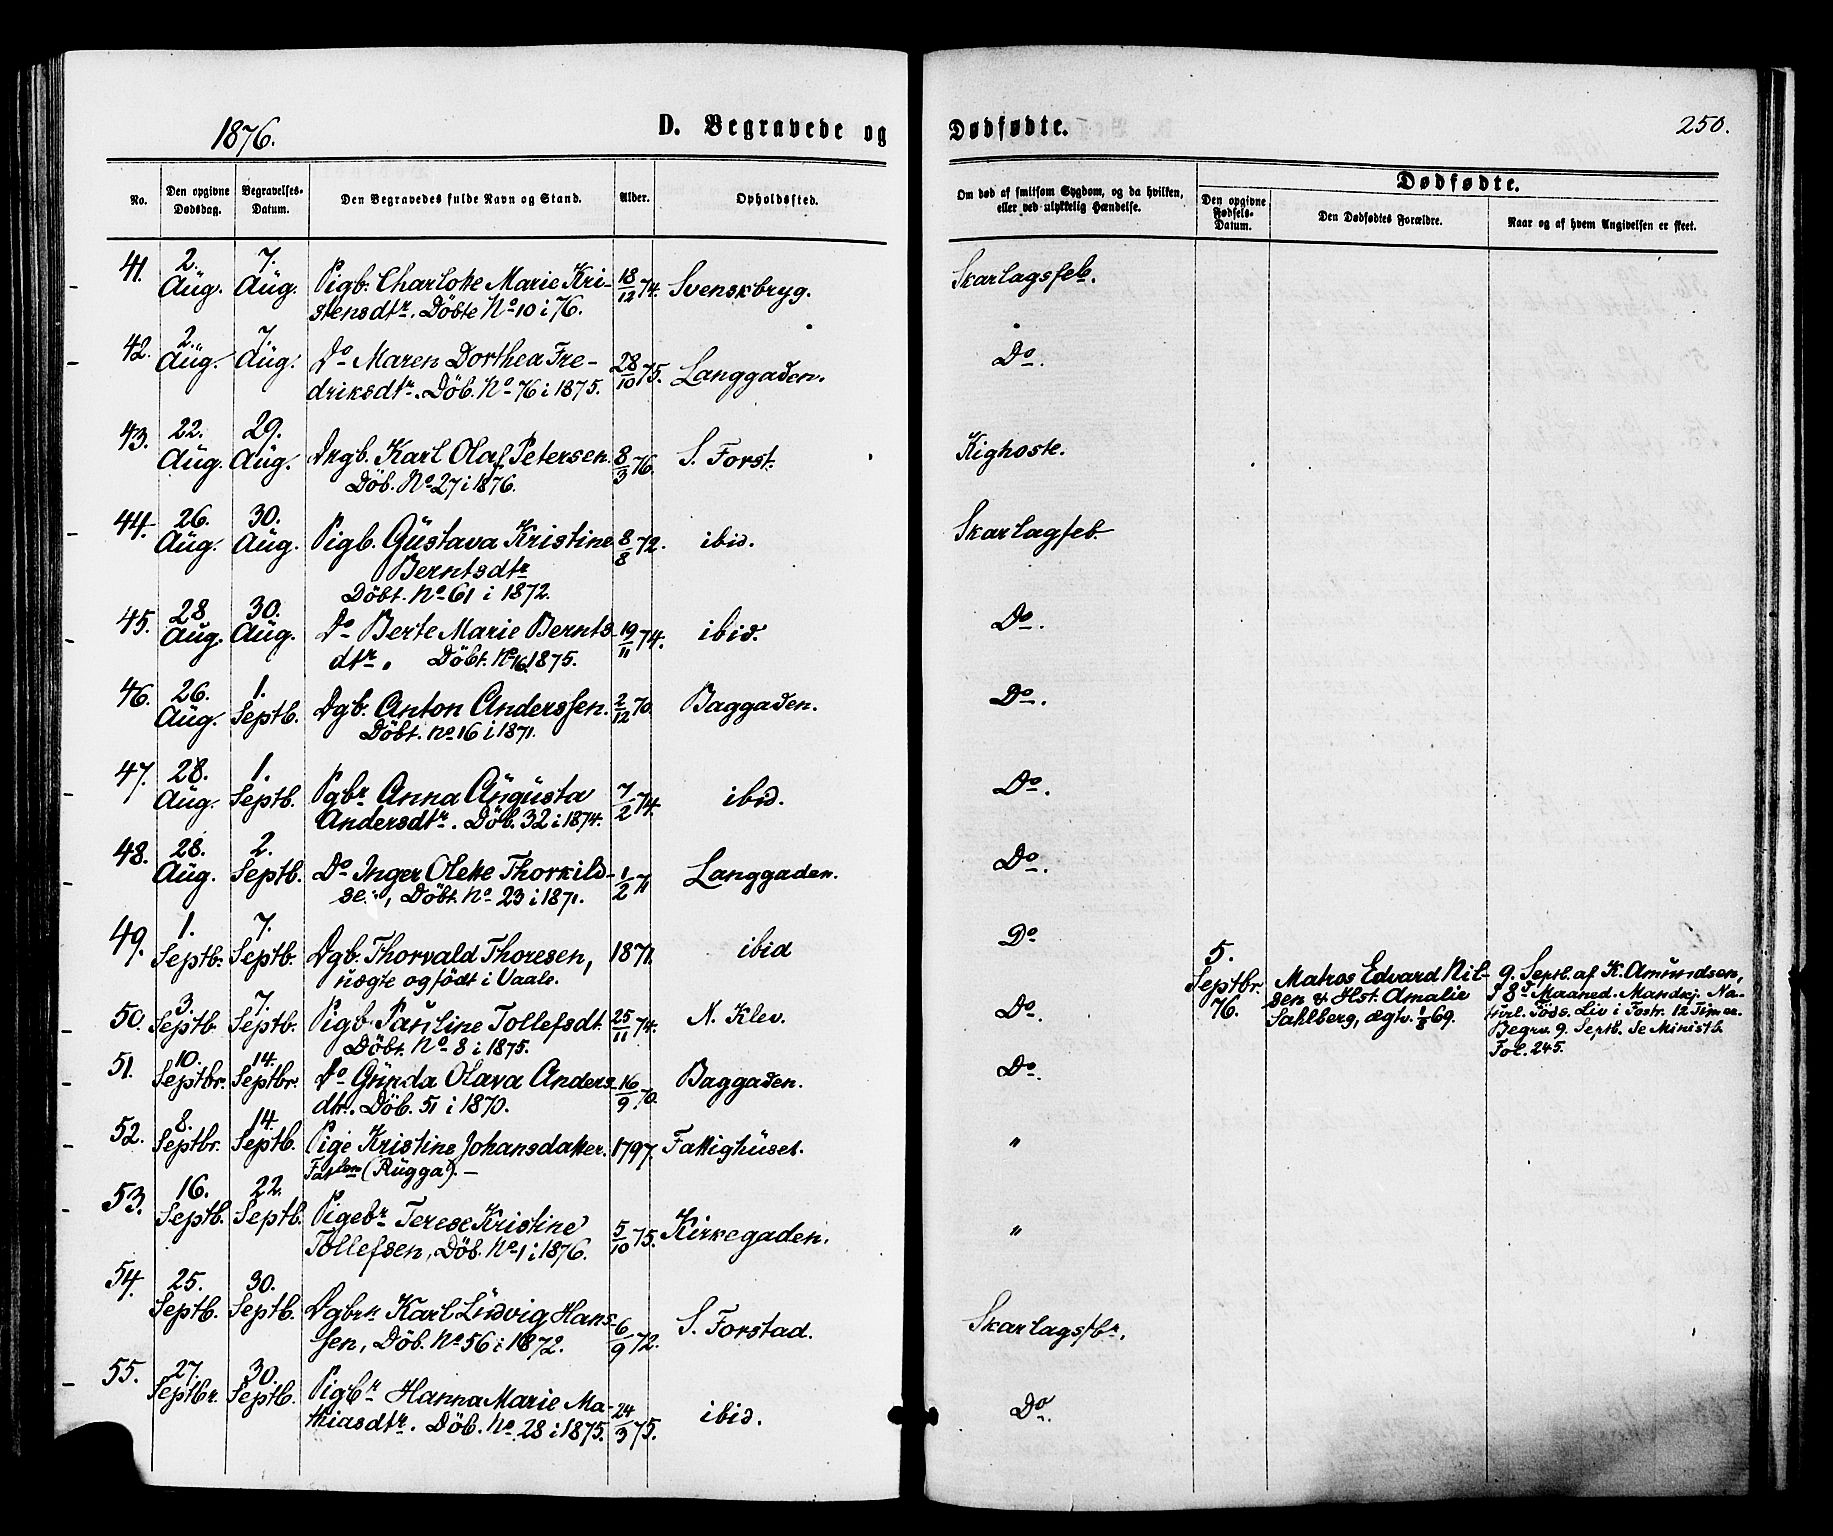 1876.
D. Begravede og
Dødfødte.
250.
No.
Den opgivne Dødsdag.
Begravelses-Datum.
Den Begravedes fulde Navn og Stand.
Alder.
Opholdssted.
Om død af smitsom Sygdom, og da hvilken, eller ved ulykkelig Hændelse.
Dødfødte.
Den opgivne Fødsels-Datum.
Den Dødfødtes Forældre.
Naar og af hvem Angivelsen er skeet.
41. 2. Aug. 7. Aug. Pigb. Charlotte Marie Kri- 18/12 74. Svenskbryg. Skarlagsfeb.
stensdtr. Döbte No 10 i 76.
42. 2. Aug. 7. Aug. Do Maren Dorthea Fre- 28/10 75. Langgaden. Do.
driksdtr. Döb. No 76 i 1875.
43. 22. Aug. 29. Aug. Drgb. Karl Olaf Petersen 8/3 76. S. Forst. Kighoste.
Döb. No 27 i 1876.
44. 26. Aug. 30. Aug. Pigb. Gustava Kristine 8/8 72. ibid. Skarlagfeb.
Berntsdtr
Döbt. No 61 i 1872.
45. 28. Aug. 30. Aug. Do Berte Marie Bernts- 19/11 74. ibid. Do.
dtr. Döbt. No 16. 1875.
46. 26. Aug. 1. Septb. Dgb. Anton Anderssen. 2/12 70. Baggaden. Do.
Döbt. No 16 i 1871.
47. 28. Aug. 1. Septb. Pgbr Anna Augusta 7/2 74. ibid. Do.
Andersdtr. Döb. 32 i 1874.
48. 28. Aug. 2. Septb. Do Inger Olette Thorkild- 1/2 71 Langgaden. Do.
sen, Döbt. No 23 i 1871.
49. 1. Septb. 7. Septb. Dgb. Thorvald Thoresen, 1871. ibid Do
uægte og födt i Vaale.
50. 3. Septb. 7. Septb. Pigb. Pauline Tollefsdt. 25/11 74. N. Klev. Do.
Döbt. No 8 i 1875.
5. Septbr. 76.
Matros Edvard Nil-
sen & Hst. Amalie
Sahlberg, ægtv. 1/8 69.
9. Septb. af K. Amundsen,
Maaned. Mandkj. Na-
turl. Föds. Liv i Fostr. 12 Timer.
Begrv. 9. Septb. Se Ministb.
Fol. 245.
51. 10. Septbr. 14. Septbr. Do Gunda Olava Anders- 16/9 70. Baggaden. Do.
dtr. Döb. 51 i 1870.
52. 8. Septbr. 14. Septb. Pige Kristine Johansdatter. 1797. Fattighuset. "
Fatlem (Rugga). —
53. 16. Septb. 22. Septb. Pigebr Terese Kristine 5/10 75. Kirkegaden. "
Tollefsen, Döb. No 1 i 1876.
54. 25. Septb. 30. Septb. Dgbrn Karl Ludvig Hans- 6/9 72. S. Forstad. Skarlagsfbr.
sen, Döb. No 56 i 1872.
55. 27. Septbr. 30. Septb. Pigbr Hanna Marie Ma- 24/3 75. ibid. Do.
thiasdtr. Döb. No 28 i 1875.